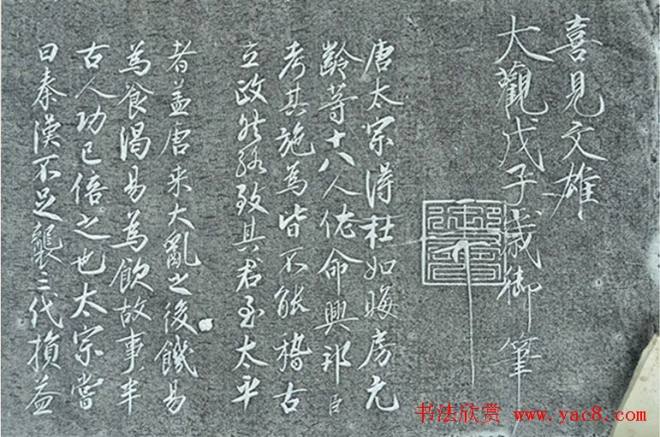 喜見文雄
大觀戊子歲御筆
唐太宗得杜如晦房元
齡等十八人佐命興邦臣
考其施為皆不能稽古
立政然致其君至太平
者蓋唐承大亂之後饑易
為食渴易為飲故事半
古人功已倍之也太宗嘗
曰秦漢不足襲三代損益
书法欣赏 www.yac8.com